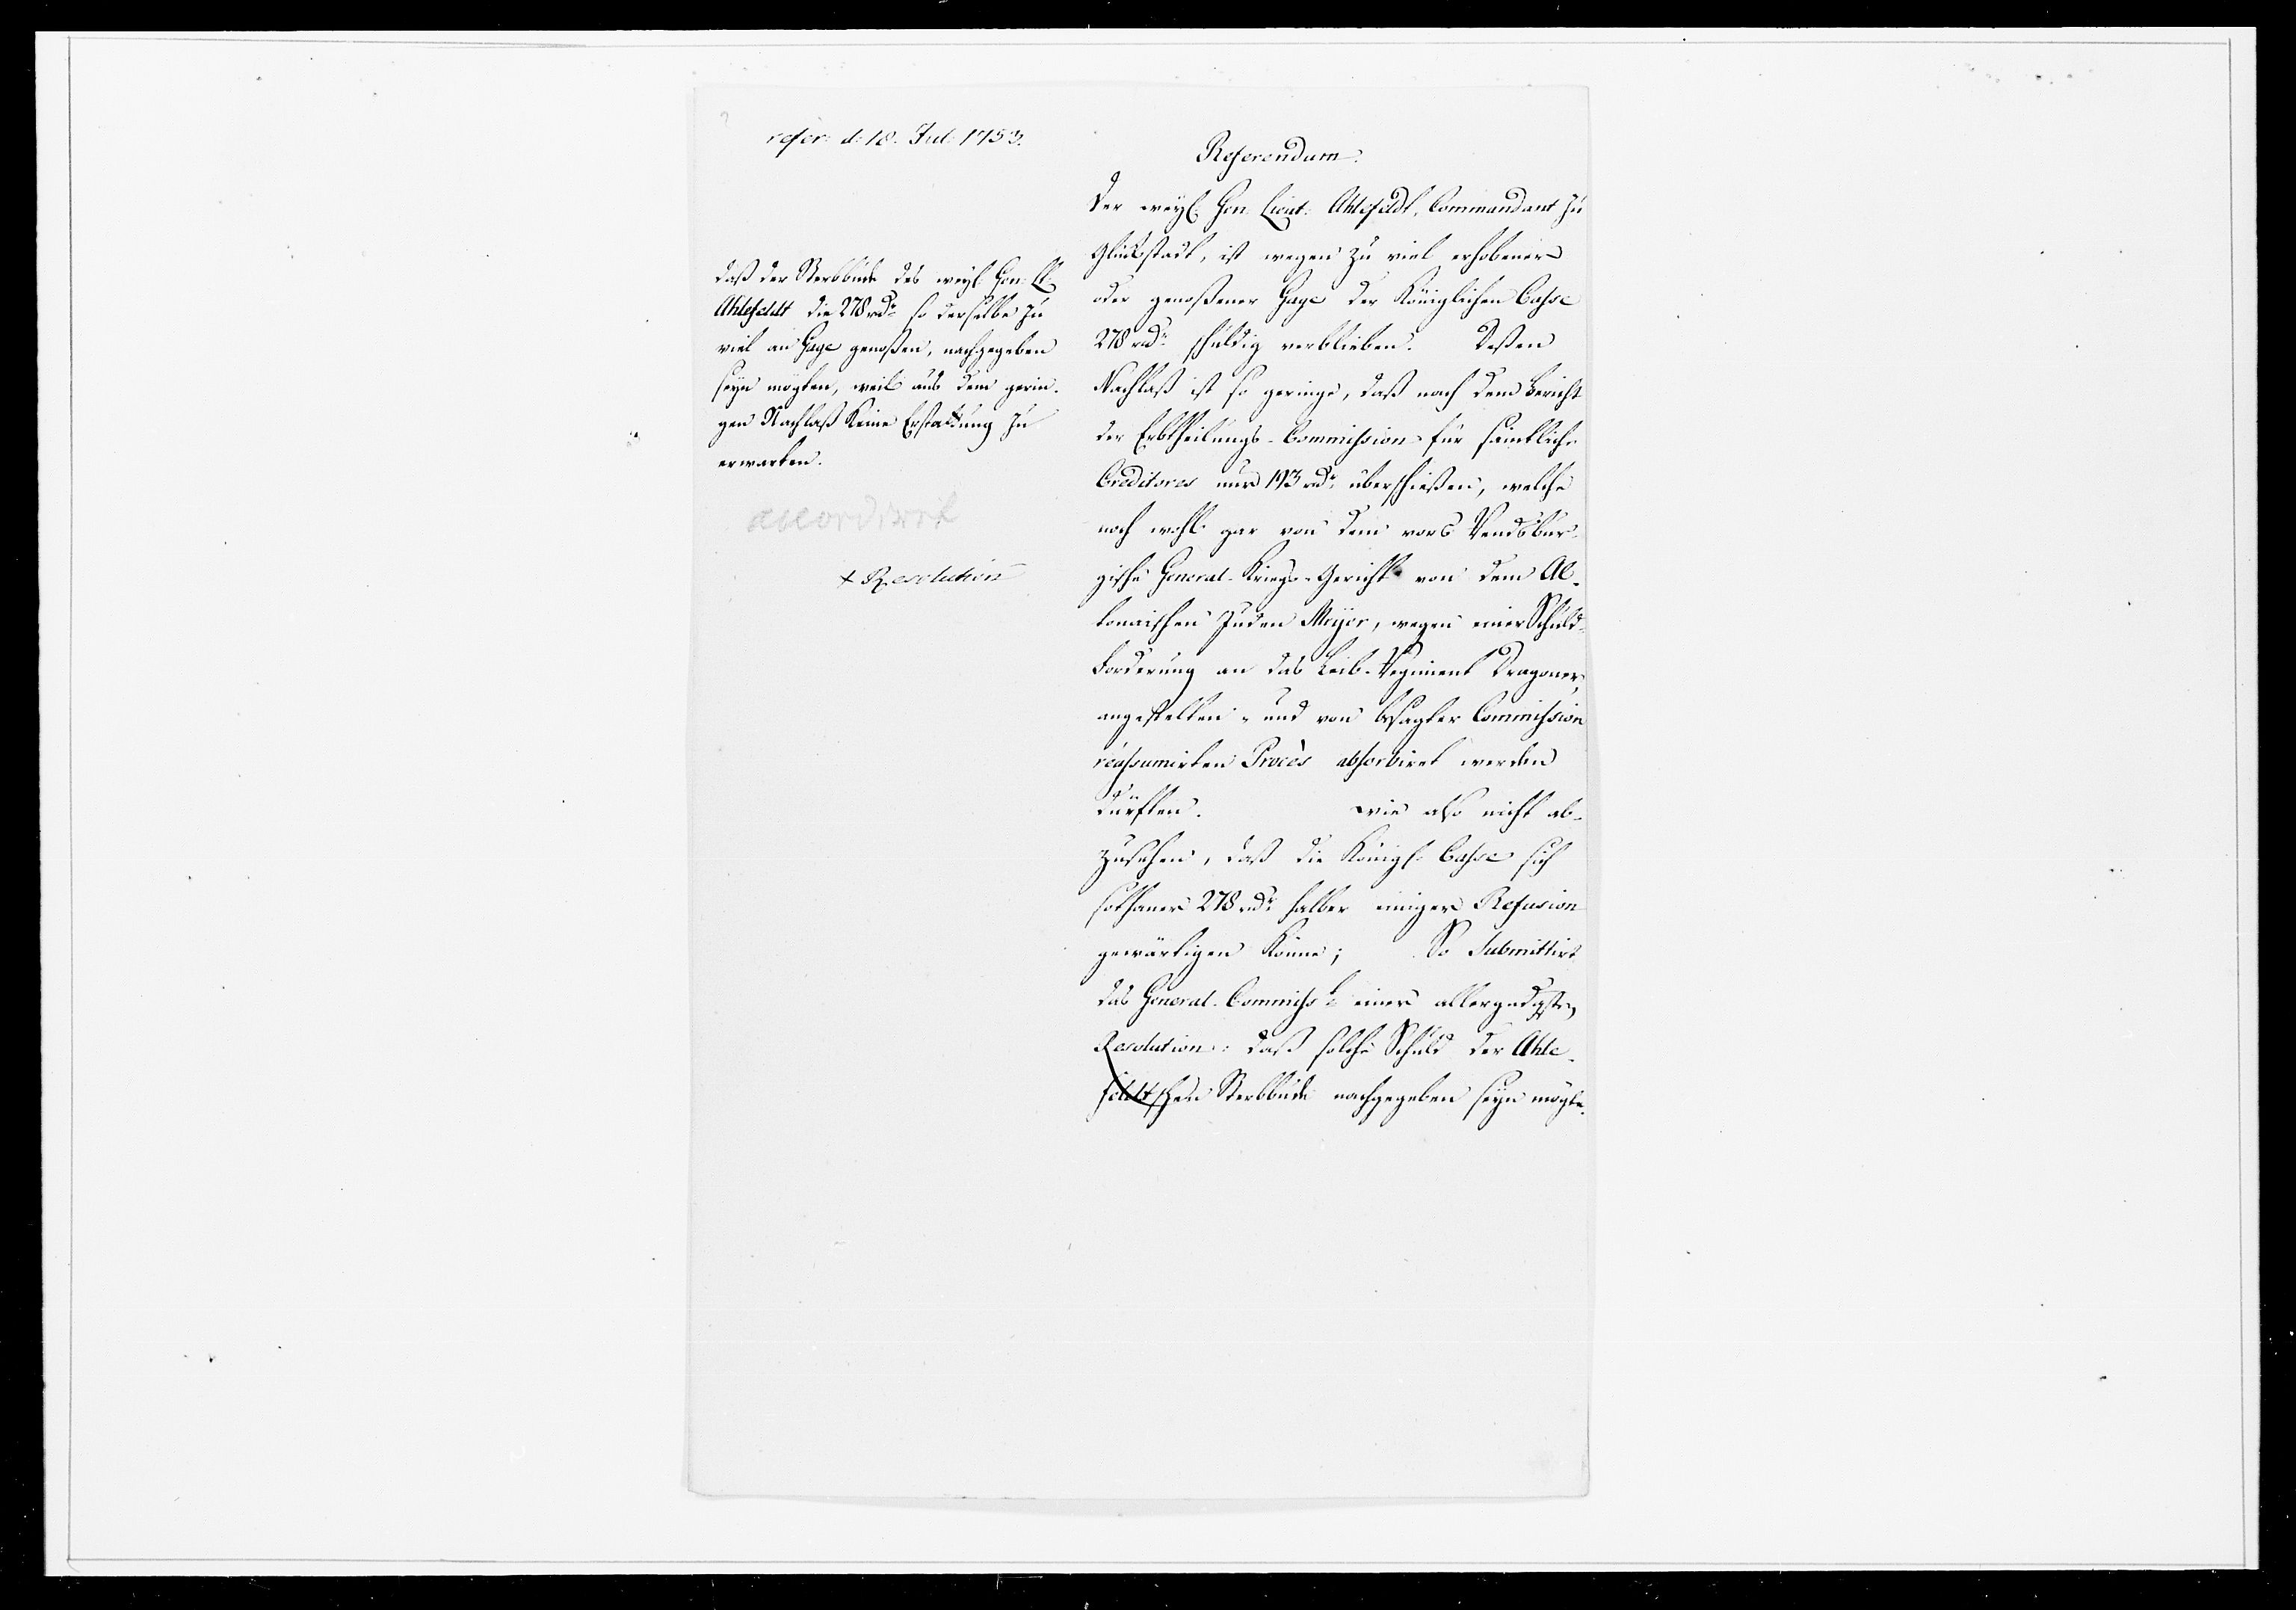 refer: d: 18. Jul: 1753.
daß der Sterbbude des weyl: Gen: Lt:
Ahlefeldt die 278 rdr. so derselbe zu
viel an Gage genoßen, nachgegeben
seyn mögten, weil aus dem gerin-
gen Nachlaß keine Erstattung zu
erwarten.
accordirt
+ Resolution
Referendum.
Der weyl: Gen: Lieut: Ahlefeldt, Commandant zu
Glückstadt, ist wegen zu viel erhobener
oder genoßener Gage der Königlichen Casse
278 rdr. schuldig verblieben. Deßen
Nachlaß ist so geringe, daß nach dem Bericht
der Erbtheilungs-Commission für sämtliche
Creditores nur 193 rdr. überschießen, welche
noch wohl gar von dem vors Rendsbur-
gische General-Kriegs-Gericht von dem Al-
tonaischen Juden Meyer, wegen einer Schuld-
Forderung an das Leib-Regiment Dragoner,
angestelten- und von besagter Commission
réassumirten Procès absorbiret werden
dürften. wie also nicht ab-
zusehen, daß die Königl: Casse sich
sothaner 278 rdr. halber einiger Refusion
gewärtigen könne; So submittirt
das General-Commiss: einer allergndgsten
Resolution: daß solche Schuld der Ahle-
feldtschen Sterbbude nachgegeben seyn mögte.